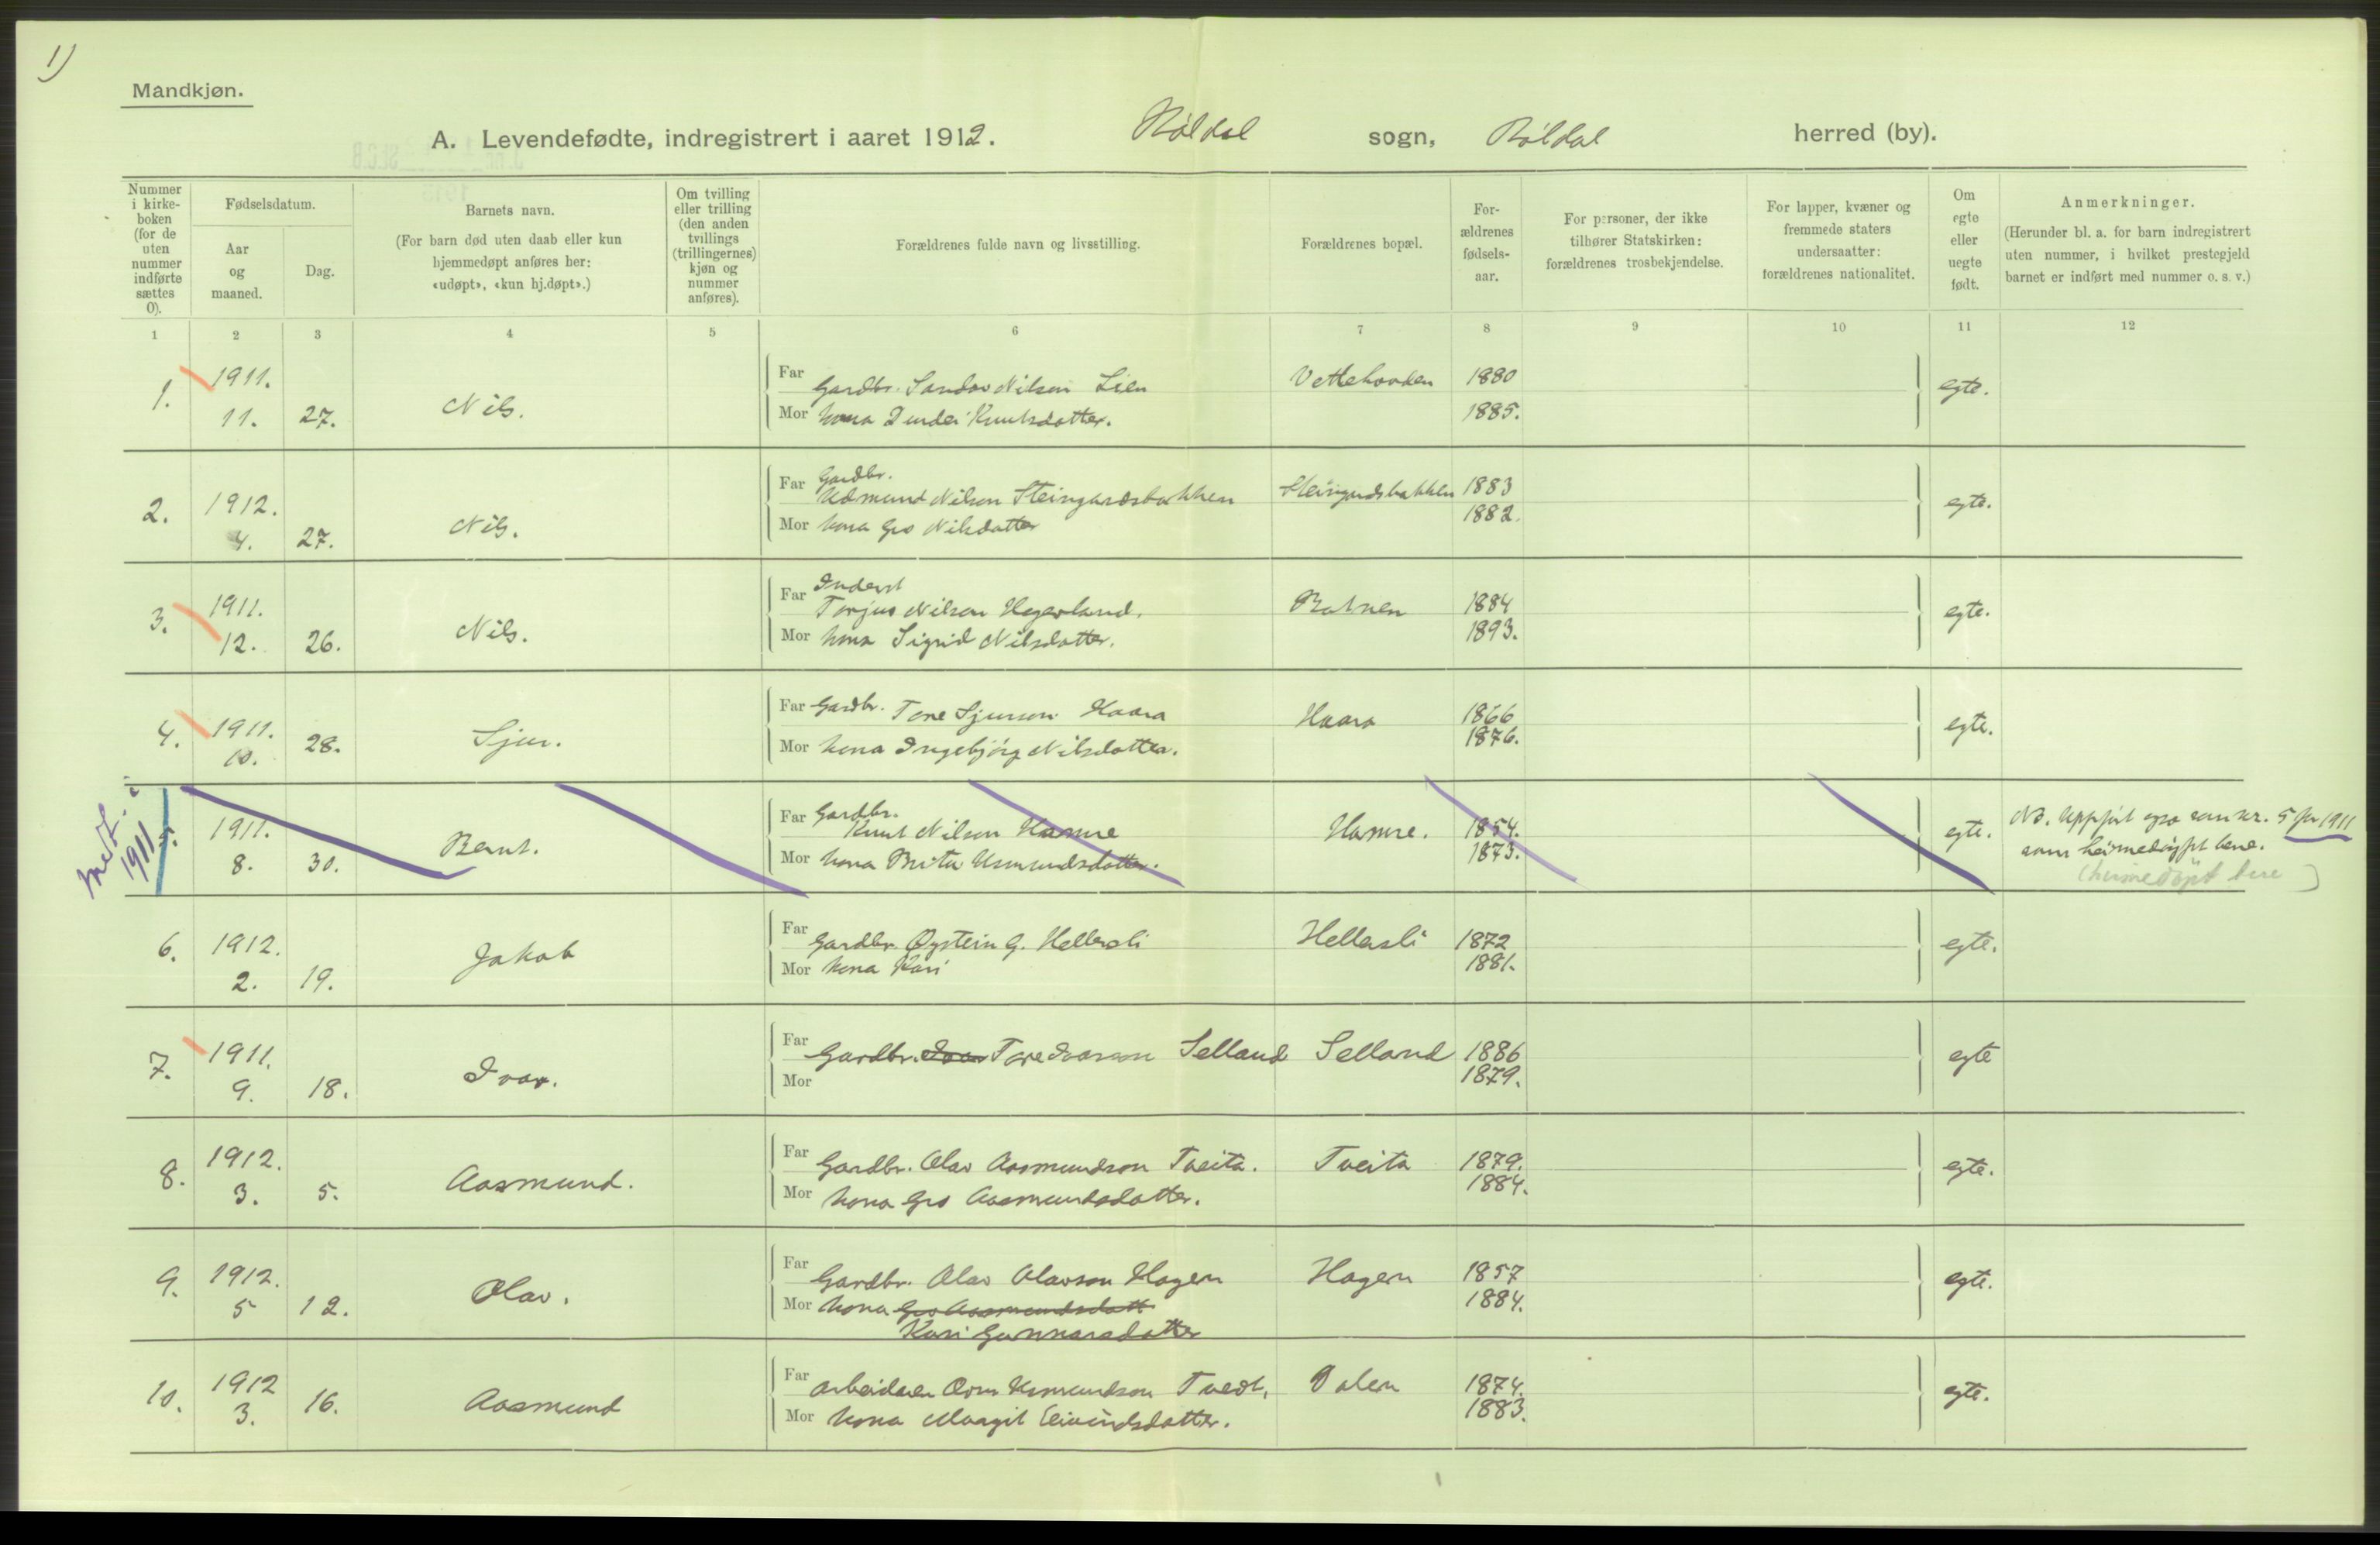 1)
Mandkjøn.
A. Levendefødte, indregistrert i aaret 1912. Röldal sogn, Röldal herred (by).
Nummer i kirke-boken (for de uten nummer indførte sættes 0).
Fødselsdatum.
Aar og maaned.
Dag.
Barnets navn.
(For barn død uten daab eller kun hjemmedøpt anføres her: «udøpt», «kun hj.døpt».)
Om tvilling eller trilling (den anden tvillings (trillingernes) kjøn og nummer anføres).
Forældrenes fulde navn og livsstilling.
Forældrenes bopæl.
For-ældrenes fødsels-aar.
For personer, der ikke tilhører Statskirken: forældrenes trosbekjendelse.
For lapper, kvæner og fremmede staters undersaatter: forældrenes nationalitet.
Om egte eller uegte født.
Anmerkninger.
(Herunder bl. a. for barn indregistrert uten nummer, i hvilket prestegjeld barnet er indført med nummer o. s. v.)
1 2 3 4 5 6 7 8 9 10 11 12
1. 1911. 11. 27. Nils.
Far Gardbr. Sandov Nilson Lien Vettehovden 1880 egte.
Mor kona Knutsdotter. 1885.
2. 1912. 4. 27. Nils.
Far Gardbr.
Udmund Nilson Steingardsbakken Steingardsbakken 1883 egte.
Mor kona Gro Nilsdotter 1882.
3. 1911. 12. 26. Nils.
Far Inderst
Torjus Nilson Hegerland. Botnen 1884 egte.
Mor kona Sigrid Nilsdotter. 1893.
4. 1911. 10. 28. Sjur.
Far Gardbr. Tore Sjurson Haara Haara 1866 egte.
Mor kona Ingebjörg Nilsdotter. 1876.
medt. i 1911
5. 1911. 8. 30. Bernt.
Far Gardbr.
Knut Nilson Hamre Hamre. 1854. egte.
Mor kona Brita Usmundsdotter. 1873.
NB. Uppfört ogso som nr. 5 for 1911
som heimedöypt bere.
(heimedöpt bere)
6. 1912. 2. 19. Jakob
Far Gardbr. Øystein G. Hellesli Hellesli 1872 egte.
Mor kona Kari 1881.
7. 1911. 9. 18. Ivar.
Far Gardbr. Ivar Tore Ivarson Selland Selland 1886 egte
Mor 1879.
8. 1912. 3. 5. Aasmund.
Far Gardbr. Olav Aasmundson Tveita. Tveita 1879. egte.
Mor kona Gro Aasmundsdotter. 1884.
9. 1912. 5 12. Olav.
Far Gardbr. Olav Olavson Hagen Hagen 1857 egte.
Mor kona Gro Aasmundsdott 1884.
Kari Gunnarsdotter
10. 1912 3. 16. Aasmund
Far arbeidaren Orm Usmundson Tvedt. Dalen 1874. egte.
Mor kona Margit Eivindsdotter. 1883.